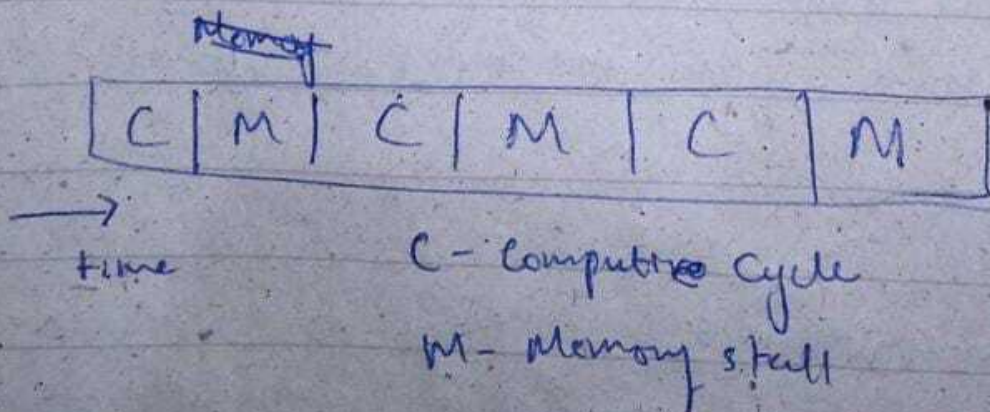 Memory
C M C M C M
→
time
C - Compute Cycle
M - Memory stall